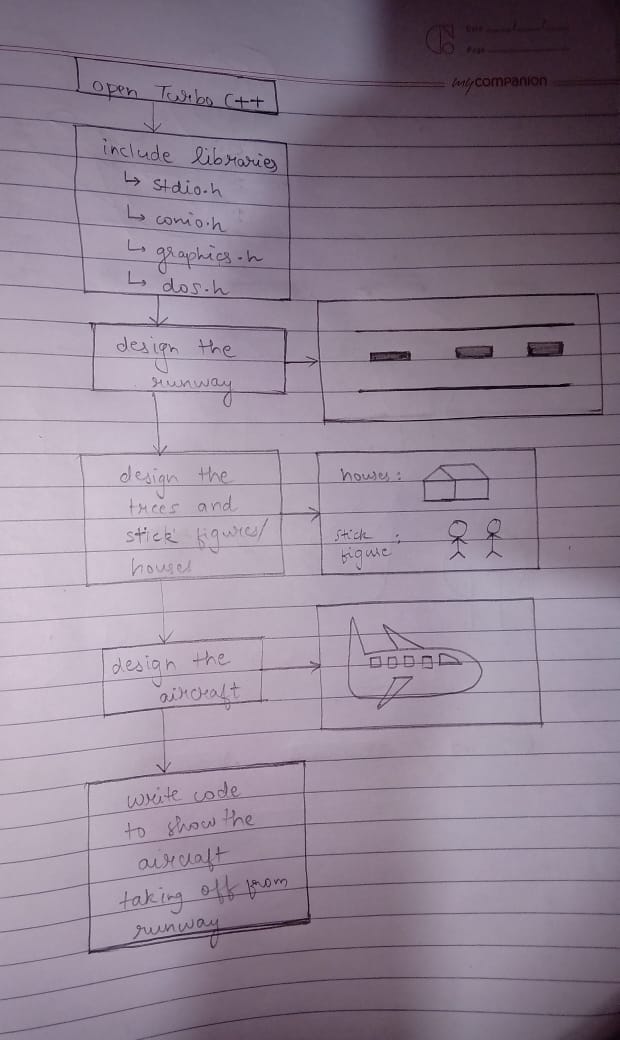 mycompanion
open Turbo C++
include libraries
↳ stdio.h
↳ conio.h
↳ graphics.h
↳ dos.h
design the
runway
design the
trees and
stick figures/
houses
houses :
stick :
figure
design the
aircraft
write code
to show the
aircraft
taking off from
runway